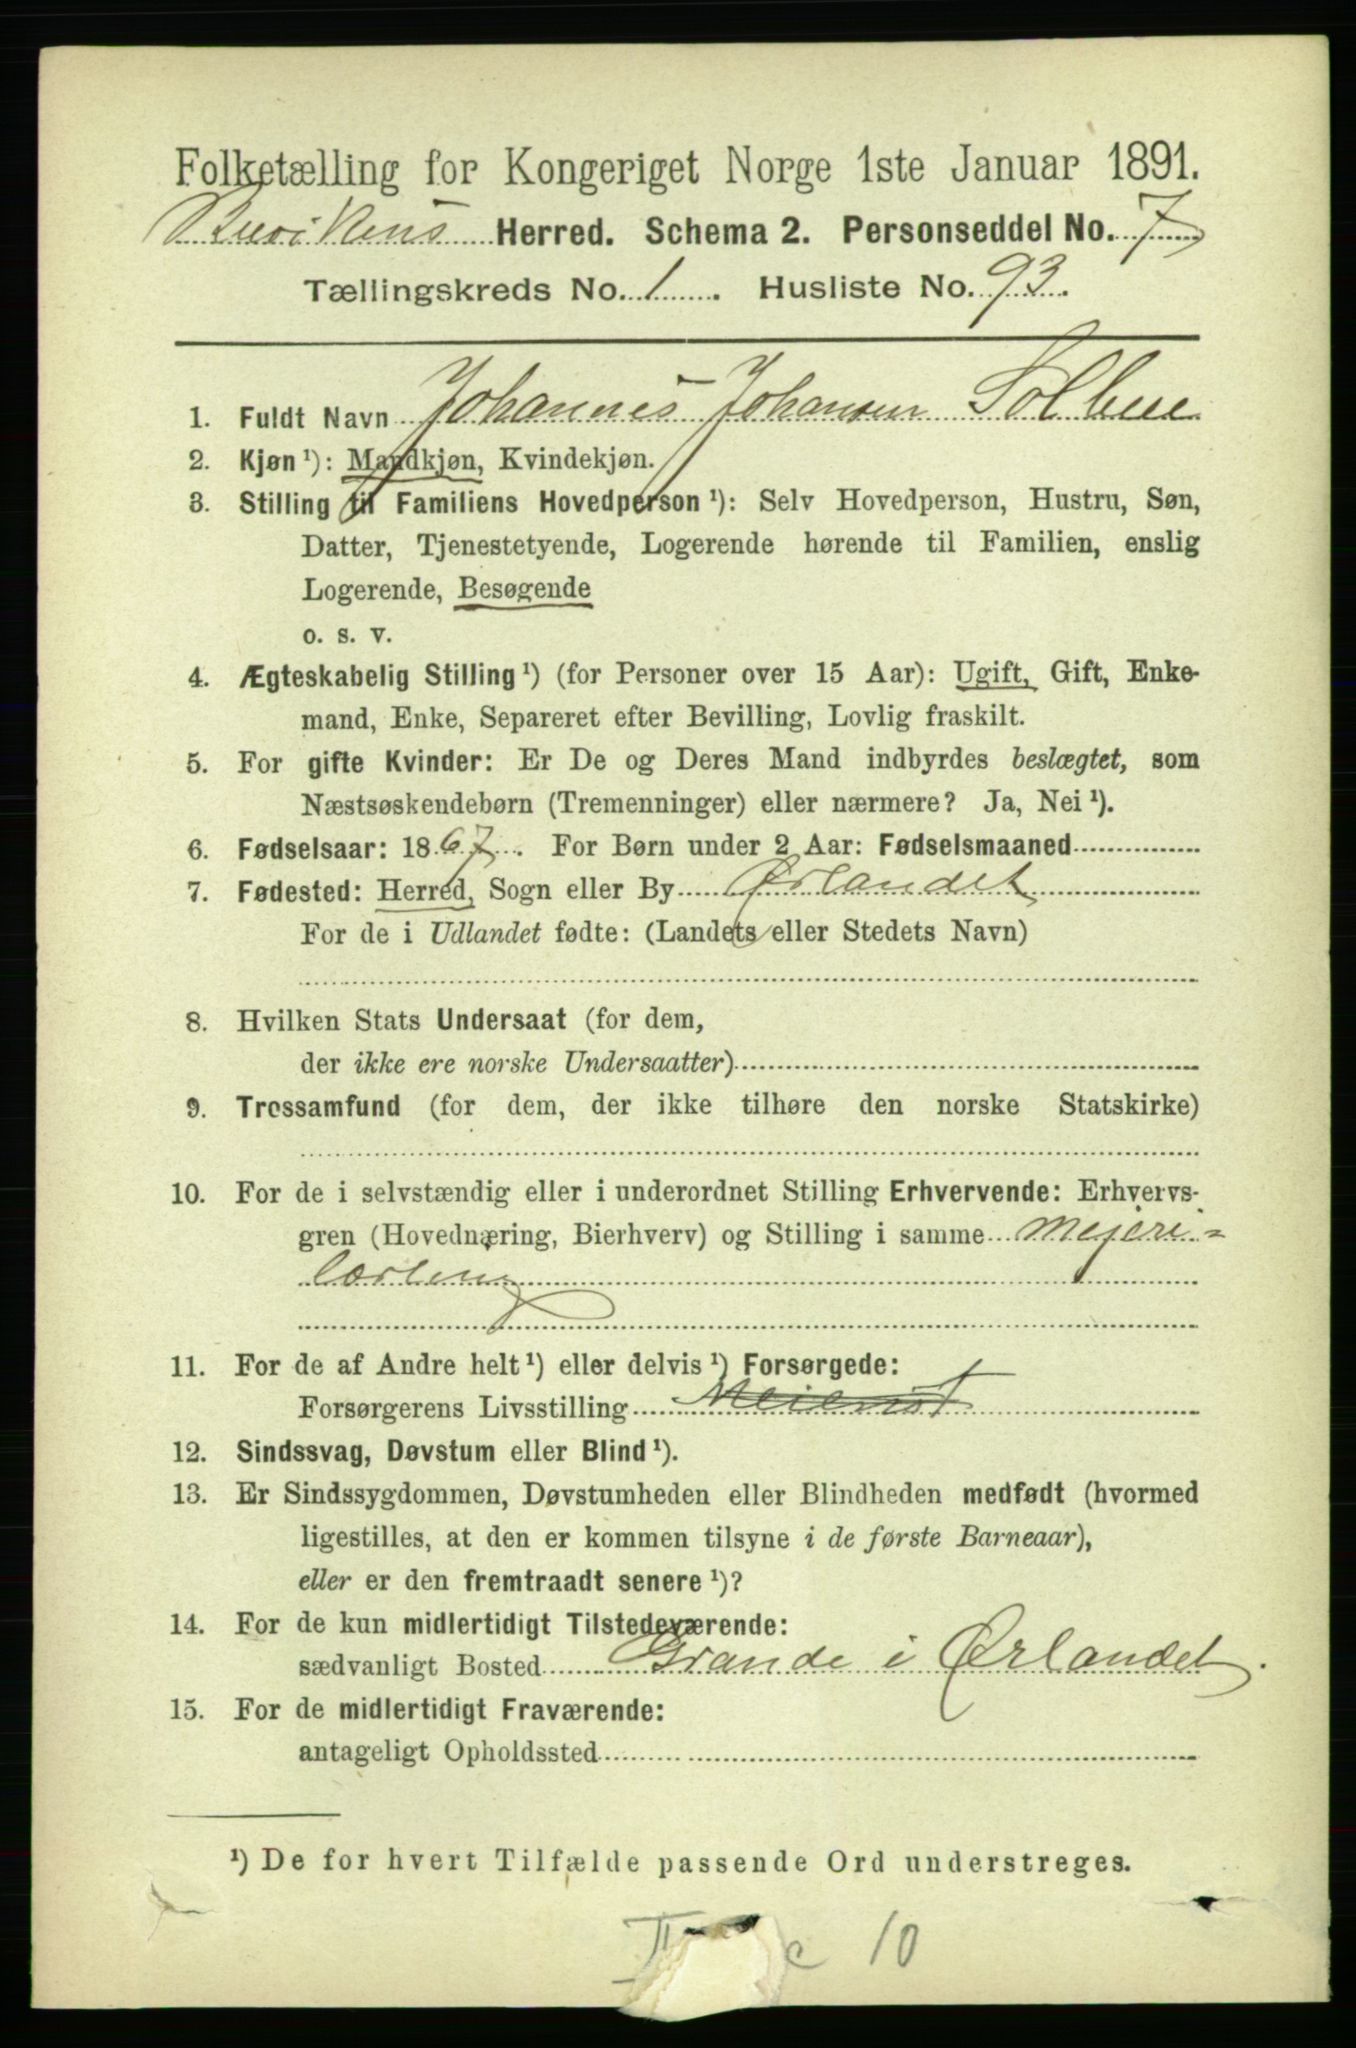 Folketælling for Kongeriget Norge 1ste Januar 1891.
Herred. Schema 2. Personseddel No. 7
Tællingskreds No. 1. Husliste No. 93.
1. Fuldt Navn Johannes Johansen
2. Kjøn ¹): Mandkjøn, Kvindekjøn.
3. Stilling til Familiens Hovedperson ¹): Selv Hovedperson, Hustru, Søn,
Datter, Tjenestetyende, Logerende hørende til Familien, enslig
Logerende, Besøgende
o. s. v.
4. Ægteskabelig Stilling ¹) (for Personer over 15 Aar): Ugift, Gift, Enke-
mand, Enke, Separeret efter Bevilling, Lovlig fraskilt.
5. For gifte Kvinder: Er De og Deres Mand indbyrdes beslægtet, som
Næstsøskendebørn (Tremenninger) eller nærmere? Ja, Nei ¹).
6. Fødselsaar: 1867. For Børn under 2 Aar: Fødselsmaaned
7. Fødested: Herred, Sogn eller By Ørlandet
For de i Udlandet fødte: (Landets eller Stedets Navn)
8. Hvilken Stats Undersaat (for dem,
der ikke ere norske Undersaatter)
9. Trossamfund (for dem, der ikke tilhøre den norske Statskirke)
10. For de i selvstændig eller i underordnet Stilling Erhvervende: Erhvervs-
gren (Hovednæring, Bierhverv) og Stilling i samme Mejeri-
lærling
11. For de af Andre helt ¹) eller delvis ¹) Forsørgede:
Forsørgerens Livsstilling Meierist
12. Sindssvag, Døvstum eller Blind ¹).
13. Er Sindssygdommen, Døvstumheden eller Blindheden medfødt (hvormed
ligestilles, at den er kommen tilsyne i de første Barneaar),
eller er den fremtraadt senere ¹)?
14. For de kun midlertidigt Tilstedeværende:
sædvanligt Bosted Grande i Ørlandet.
15. For de midlertidigt Fraværende:
antageligt Opholdssted
¹) De for hvert Tilfælde passende Ord understreges.
II c 10